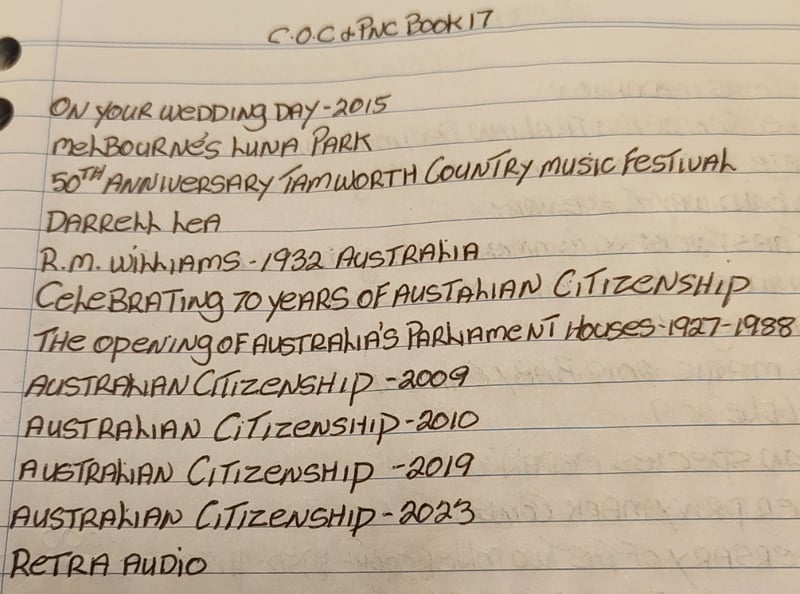 C.O.C & PNC BOOK 17
ON YOUR WEDDING DAY - 2015
MELBOURNE'S LUNA PARK
50TH ANNIVERSARY TAMWORTH COUNTRY MUSIC FESTIVAL
DARRELL LEA
R.M. WILLIAMS - 1932 AUSTRALIA
CELEBRATING 70 YEARS OF AUSTALIAN CITIZENSHIP
THE OPENING OF AUSTRALIA'S PARLIAMENT HOUSES - 1927-1988
AUSTRALIAN CITIZENSHIP - 2009
AUSTRALIAN CITIZENSHIP - 2010
AUSTRALIAN CITIZENSHIP - 2019
AUSTRALIAN CITIZENSHIP - 2023
RETRA AUDIO